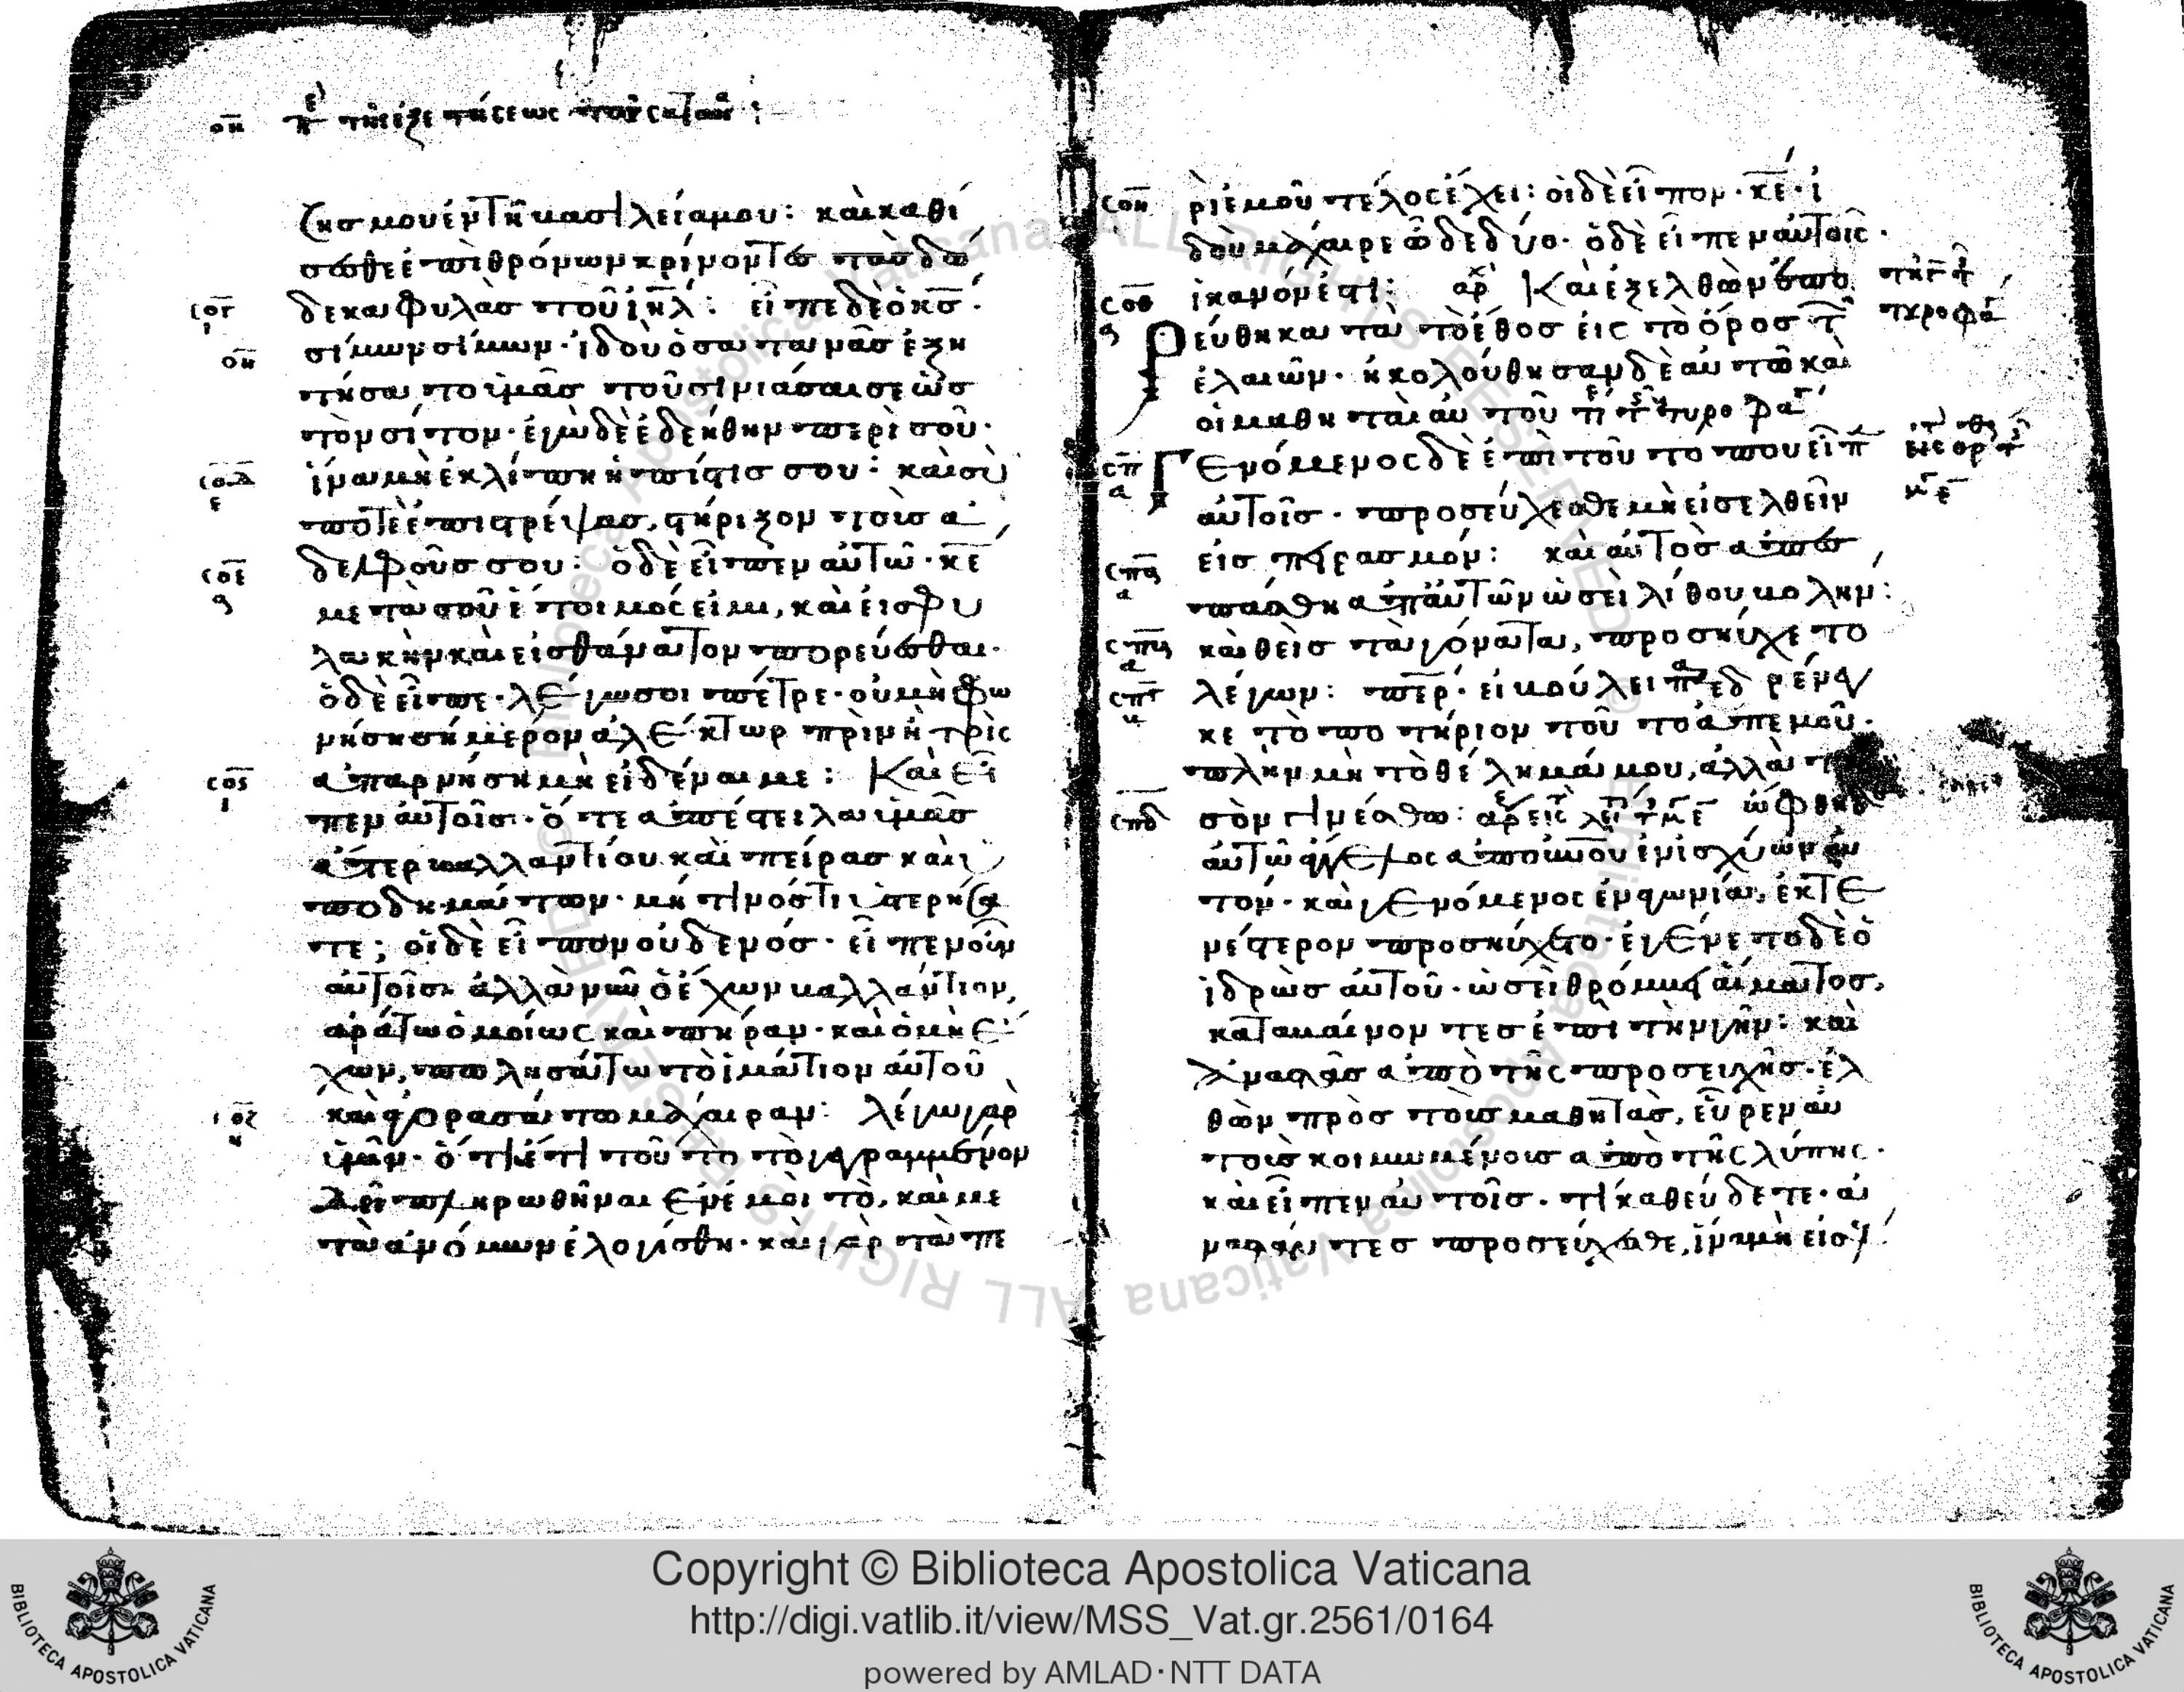 οη περὶ τῆς ἐξετήσεως τοῦ σατανᾶ:
ζησ μου ἐν τῆ βασιλεία μου: καὶ καθί
σεσθε ἐπὶ θρόνων κρίνοντεσ τὰσ δώ
δεκα φυλὰσ τοῦ ἰηλ: εἶπε δὲ ὁ κσ.
σίμων σίμων· ἰδοὺ ὁ σατανᾶσ ἐξη
τήσατο ὑμᾶσ τοῦ σινιάσαι ὡσ
τὸν σίτον· ἐγὼ δὲ ἐδεήθην περὶ σοῦ·
ἵνα μὴ ἐκλίπη ἡ πίστισ σου: καὶ σὺ
ποτὲ ἐπιστρέψασ, στήριξον τοὺσ ἀ
δελφοὺσ σου: ὁ δὲ εἶπεν αὐτῶ· κε
μετὰ σοῦ ἕτοιμός εἰμι, καὶ εἰσ φυ
λακὴν καὶ εἰσ θάνατον πορεύεσθαι·
ὁ δὲ εἶπε· λέγω σοι πέτρε· οὐ μὴ φω
νήση σήμερον ἀλέκτωρ πρὶν ἢ τρὶς
ἀπαρνήση μὴ εἰδέναι με: Καὶ εἶ
πεν αὐτοῖσ· ὅτε ἀπέστειλα ὑμᾶσ
ἄτερ βαλλαντίου καὶ πείρασ καὶ
ὑποδημάτων· μή τινόσ τι ὑστερήσα
τε; οἱ δὲ εἶπον οὐδενόσ· εἶπεν οὖν
αὐτοῖσ· ἀλλὰ νῦν ὁ ἔχων βαλλάντιον,
ἀράτω ὁμοίως καὶ πήραν· καὶ ὁ μὴ ἔ
χων, πωλησάτω τὸ ἱμάτιον αὐτοῦ
καὶ ἀγορασάτω μάχαιραν: λέγω γὰρ
ὑμῖν· ὅτι ἔτι τοῦτο τὸ γεγραμμένον
δεῖ πληρωθῆναι ἐν ἐμοὶ τὸ, καὶ με
τὰ ἀνόμων ἐλογίσθη· καὶ γὰρ τὰ πε
ρὶ ἐμοῦ τέλος ἔχει: οἱ δὲ εἶπον· κε· ἰ
δοὺ μάχαιρε ὧδε δύο· ὁ δὲ εἶπεν αὐτοῖς·
ἱκανόν ἐστι: Καὶ ἐξελθὼν ἐπο
ρεύθη κατὰ τὸ ἔθοσ εἰς τὸ ὄροσ τ
ἐλαιῶν· ἠκολούθησαν δὲ αὐτῶ καὶ
οἱ μαθηταὶ αὐτοῦ
Γενόμενος δὲ ἐπὶ τοῦ τόπου εἶπ
αὐτοῖσ· προσεύχεσθε μὴ εἰσελθεῖν
εἰσ πειρασμόν: καὶ αὐτὸσ ἀπεσ
πάσθη ἀπ' αὐτῶν ὡσεὶ λίθου βολήν:
καὶ θεὶσ τὰ γόνατα, προσηύχετο
λέγων: περ· εἰ βούλει παρένεγ
κε τὸ ποτήριον τοῦτο ἀπ' ἐμοῦ·
πλὴν μὴ τὸ θέλημά μου, ἀλλὰ τὸ
σὸν γινέσθω: ὤφθη δὲ
αὐτῶ ἄγγελος ἀπ' οὐνοῦ ἐνισχύων αὐ
τόν· καὶ γενόμενος ἐν ἀγωνία, ἐκτε
νέστερον προσηύχετο· ἐγένετο δὲ ὁ
ἱδρὼσ αὐτοῦ· ὡσεὶ θρόμβοι αἵματοσ,
καταβαίνοντεσ ἐπὶ τὴν γῆν: καὶ
ἀναστὰσ ἀπὸ τῆς προσευχῆσ· ἐλ
θὼν πρὸσ τοὺσ μαθητὰσ, εὗρεν αὐ
τοὺσ κοιμωμένουσ ἀπὸ τῆς λύπης·
καὶ εἶπεν αὐτοῖσ· τί καθεύδετε· ἀ
ναστάντεσ προσεύχεσθε, ἵνα μὴ εἰσ
Copyright © Biblioteca Apostolica Vaticana
http://digi.vatlib.it/view/MSS_Vat.gr.2561/0164
powered by AMLAD·NTT DATA
BIBLIOTECA APOSTOLICA VATICANA
BIBLIOTECA APOSTOLICA VATICANA